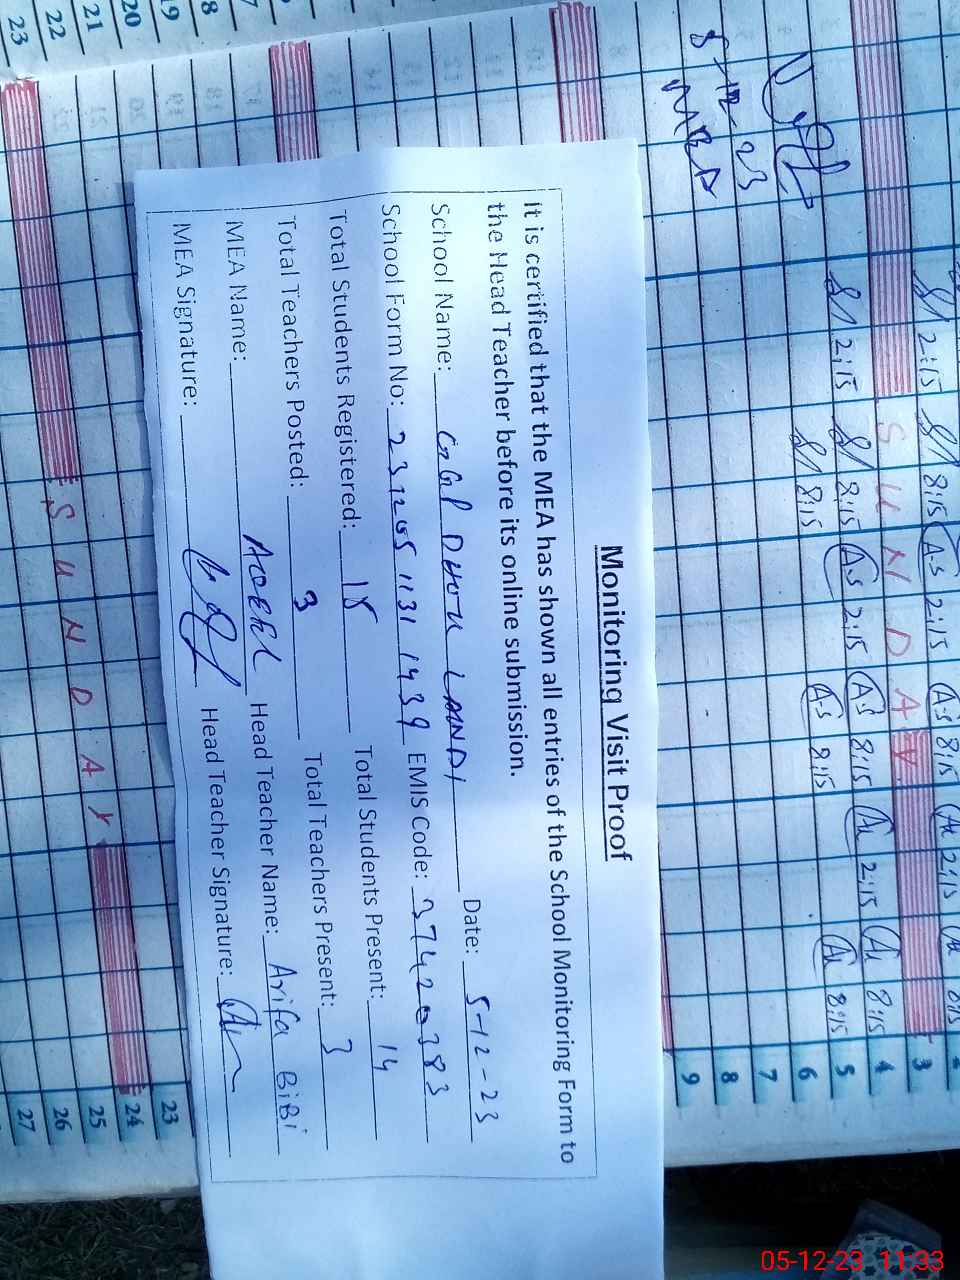 Monitoring Visit Proof
It is certified that the MEA has shown all entries of the School Monitoring Form to
the Head Teacher before its online submission.
School Name: GGP DHOU LANDI Date: 5-12-23
School Form No: 231205 1131 1439 EMIS Code: 37420383
Total Students Registered: 18 Total Students Present: 14
Total Teachers Posted: 3 Total Teachers Present: 3
MEA Name: Head Teacher Name: Arifa BiBi
MEA Signature: Head Teacher Signature:
5-12-23
MEA
2:15 8:15 A.S 2:15 A.S 8:15 2:15 8:15 3
SUNDAY 4
2:15 8:15 A.S 2:15 A.S 8:15 2:15 8:15 5
8:15 A.S 8:15 8:15 6
7
8
9
23
SUNDAY 24
25
26
27
SUNDAY
19
20
21
22
23
05-12-23 11:33